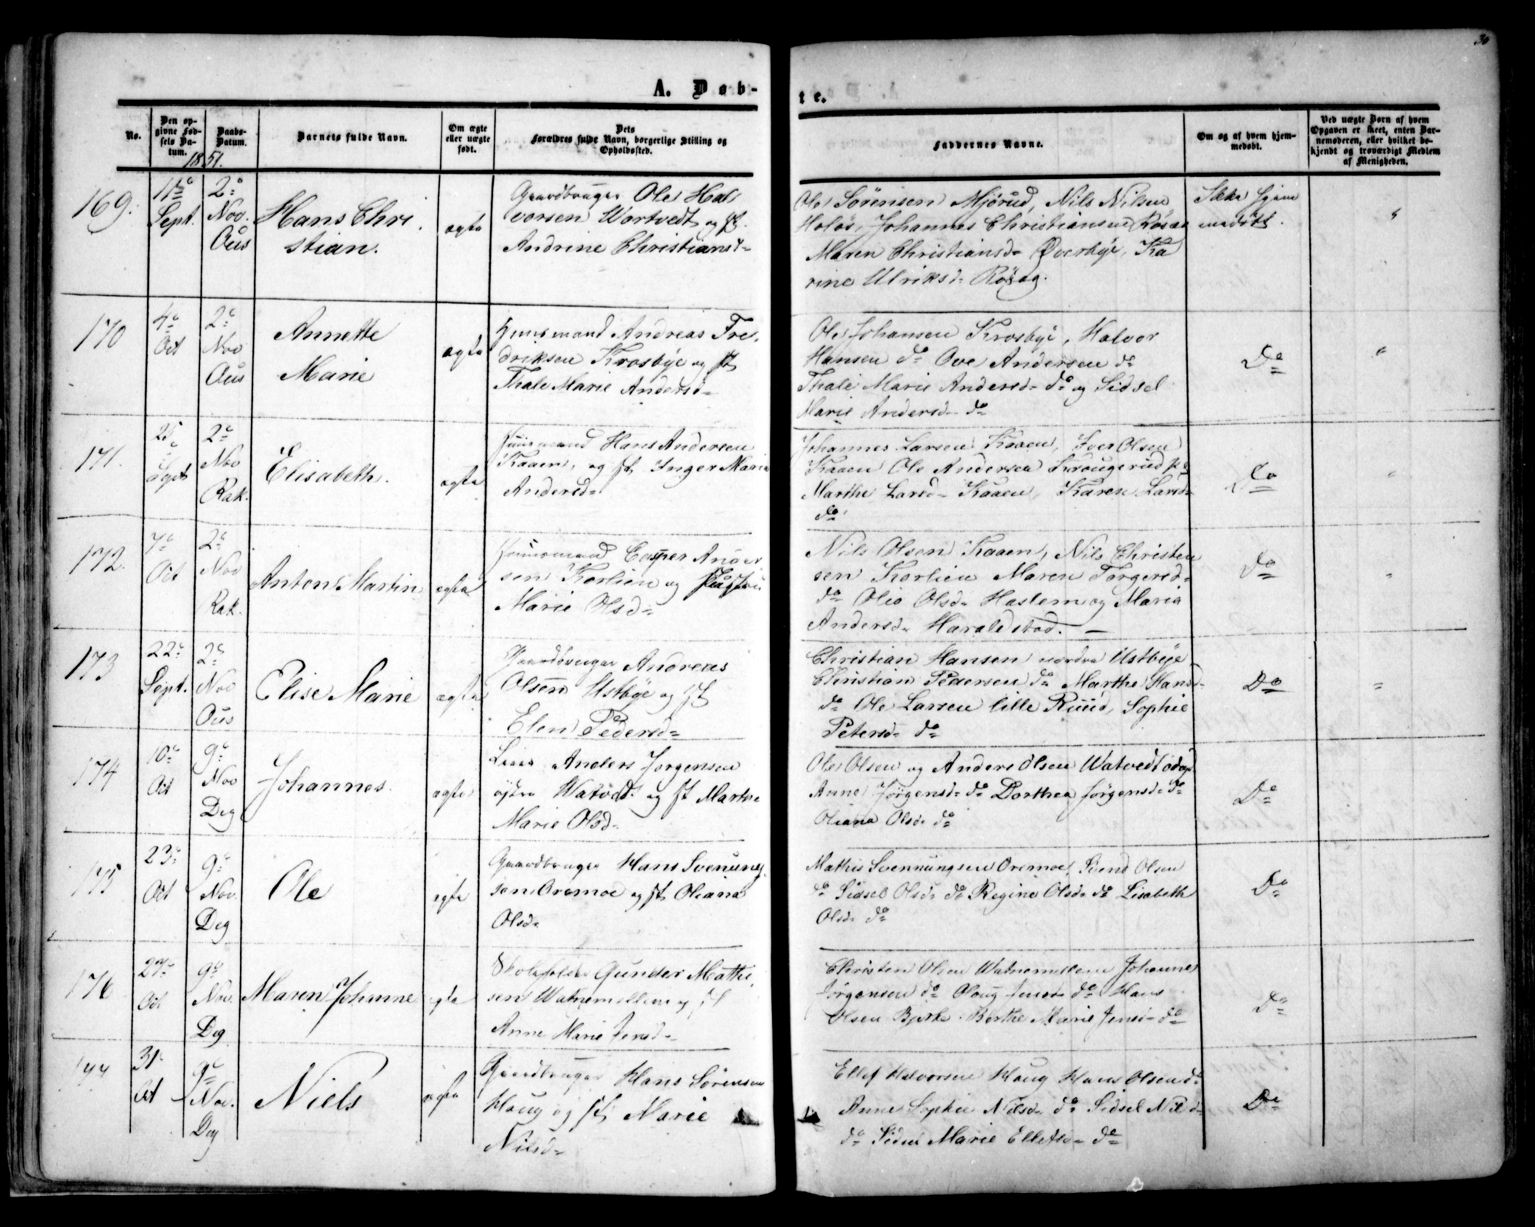 30
A. Døb-
te.
No.
Den opgivne Fødsels Datum.
Daabs-Datum.
Barnets fulde Navn.
Om ægte eller uægte født.
Dets Forældres fulde Navn, borgerlige Stilling og Opholdssted.
Faddernes Navne.
Om og af hvem hjemmedøbt.
Ved uægte Børn af hvem Opgaven er skeet, enten Barnemoderen, eller hvilket bekjendt og troværdigt Medlem af Menigheden.
1851.
169.
11te Sept.
2de Nov. Aus
Hans Christian.
ægte
Gaardbruger Ole Halvorsen Wartvedt og H. Andrine Christiansd.
Ole Sørensen Mjørud, Nils Nilsen
Holøs, Johannes Christiansen Røsæg
Maren Christiansd. Øverbye, Karine Ulriksd. Røsæg.
Ikke hjemmedøbt.
"
170
4de Oct
2de Nov Aus
Annette Marie
ægte
Huusmand Andreas Fredriksen Krosbye og H. Thale Marie Andersd.
Ole Johansen Krosbye, Halvor
Hansen do Ove Andersen do
Thale Marie Andersd. do og Sidsel
Marie Andersd. do
Do
"
171.
25de Sept
2de Nov Rak.
Elisabeth.
ægte
Huusmand Hans Andersen Kaaen, og H. Inger Marie Andersd.
Johannes Larsen Kaaen, Iver Olsen
Kaaen Ole Andersen
Marthe Larsd. Kaaen, Karen Larsd.
do
Do
"
172.
7de Oct
2de Nov Rak.
Anton Martin
ægte
Huusmand Casper Andersen Kortien og H. Marie Olsd.
Nils Olsen Kaaen, Nils Christensen Kortien Maren Torgersd.
do Olia Olsd. Haslem og Maria
Andersd. Haraldstad.
Do
"
173
22de Sept.
2de Nov Aus
Elise Marie
ægte
Gaardbruger Andreas Olsen Ustbye og H. Elen Pedersd.
Christian Hansen nordre Ustbye
Christian Pedersen do Marthe Hansd.
do Ole Larsen lille Ruud, Sophie
Petersd. do
Do
"
174
10de Oct
9de Nov Deg
Johannes.
ægte
Anders Jørgensen Watvedt og H. Marthe Marie Olsd.
Ole Olsen og Anders Olsen Watvedt
Anne Jørgensd. do Dorthea Jørgensd. do
Oliana Olsd. do
Do
175
23de Oct
9de Nov. Deg
Ole
ægte
Gaardbruger Hans Svenningsen Oremoe og H. Oliana Olsd.
Mathis Svenningsen Oremoe, Olsen
do Sidsel Olsd. do Regine Olsd. do Lisabeth
Olsd. do
Do
176
27de Oct
9de Nov. Deg
Maren Johanne
ægte
Skoleholder Gunder Mathisen Watnemellem og H. Anne Marie Jensd.
Christen Olsen Watnemellem Johannes
Jørgensen do Olaug Jensd. do Hans
Olsen Berthe Marie Jensd. do
Do
177
31. Oct
9de Nov. Deg
Niels
ægte
Gaardbruger Hans Sørensen Haug og H. Marie Nilsd.
Ellef Halvorsen Haug Hans Olsen do
Anne Sophie Nilsd. do Sidsel Nilsd.
do Marie Ellefsd. do
Do